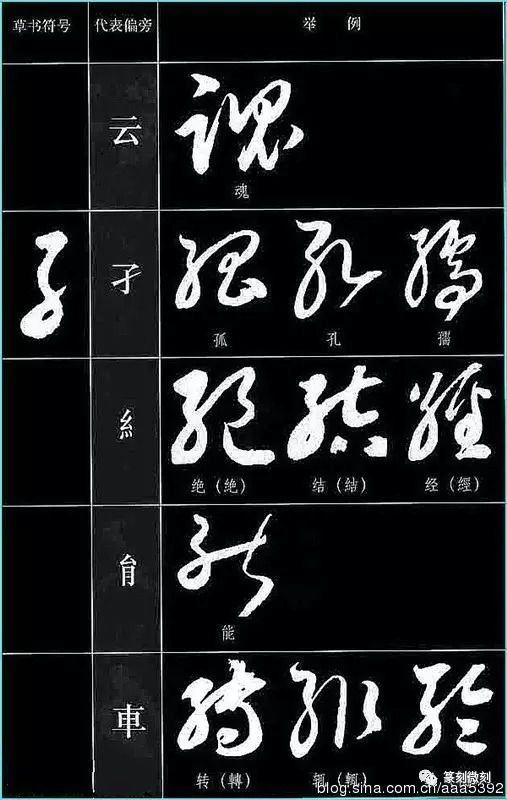 草书符号 代表偏旁 举 例
云
魂
孑
孤 孔 孺
糹
绝（绝） 结（結） 经（經）
能
車
转（轉） 辄（輒）
篆刻微刻
blog.sina.com.cn/aaa5392